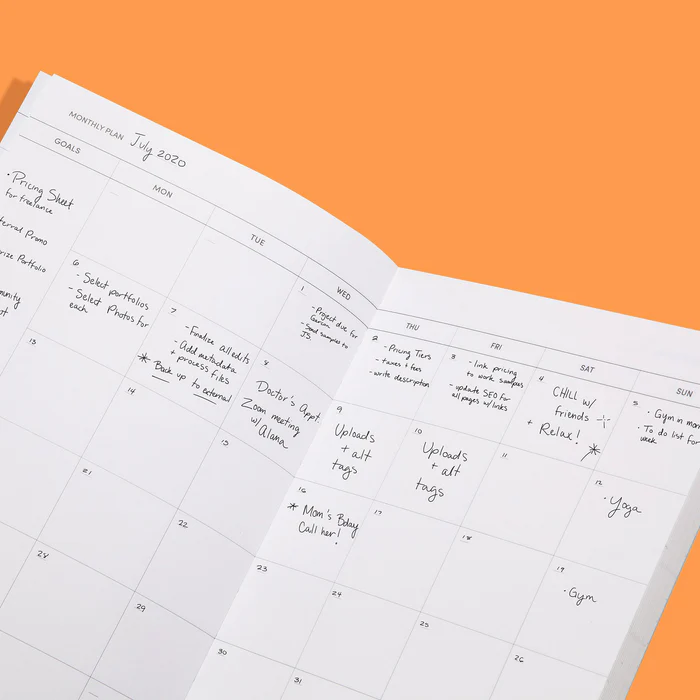 MONTHLY PLAN July 2020
GOALS
MON
TUE
WED
THU
FRI
SAT
SUN
· Pricing Sheet
for freelance
Promo
Portfolio
1
- Project due for
- Send samples to
JB
2
- Pricing Tiers
- taxes + fees
- write description
3
- link pricing
to work samples
- update SEO for
all pages w/ links
4
CHILL w/
friends
+ Relax!
5
· Gym in
· To do list for
week
6
- Select portfolios
- Select Photos for
each
7
- Finalize all edits
- Add metadata
+ process files
* Back up to external
8
Doctor's Appt.
Zoom meeting
w/ Alana
9
Uploads
+ alt
tags
10
Uploads
+ alt
tags
11
12
· Yoga
13
14
15
16
* Mom's Bday
Call her!
17
18
19
· Gym
21
22
23
24
25
26
28
29
30
31